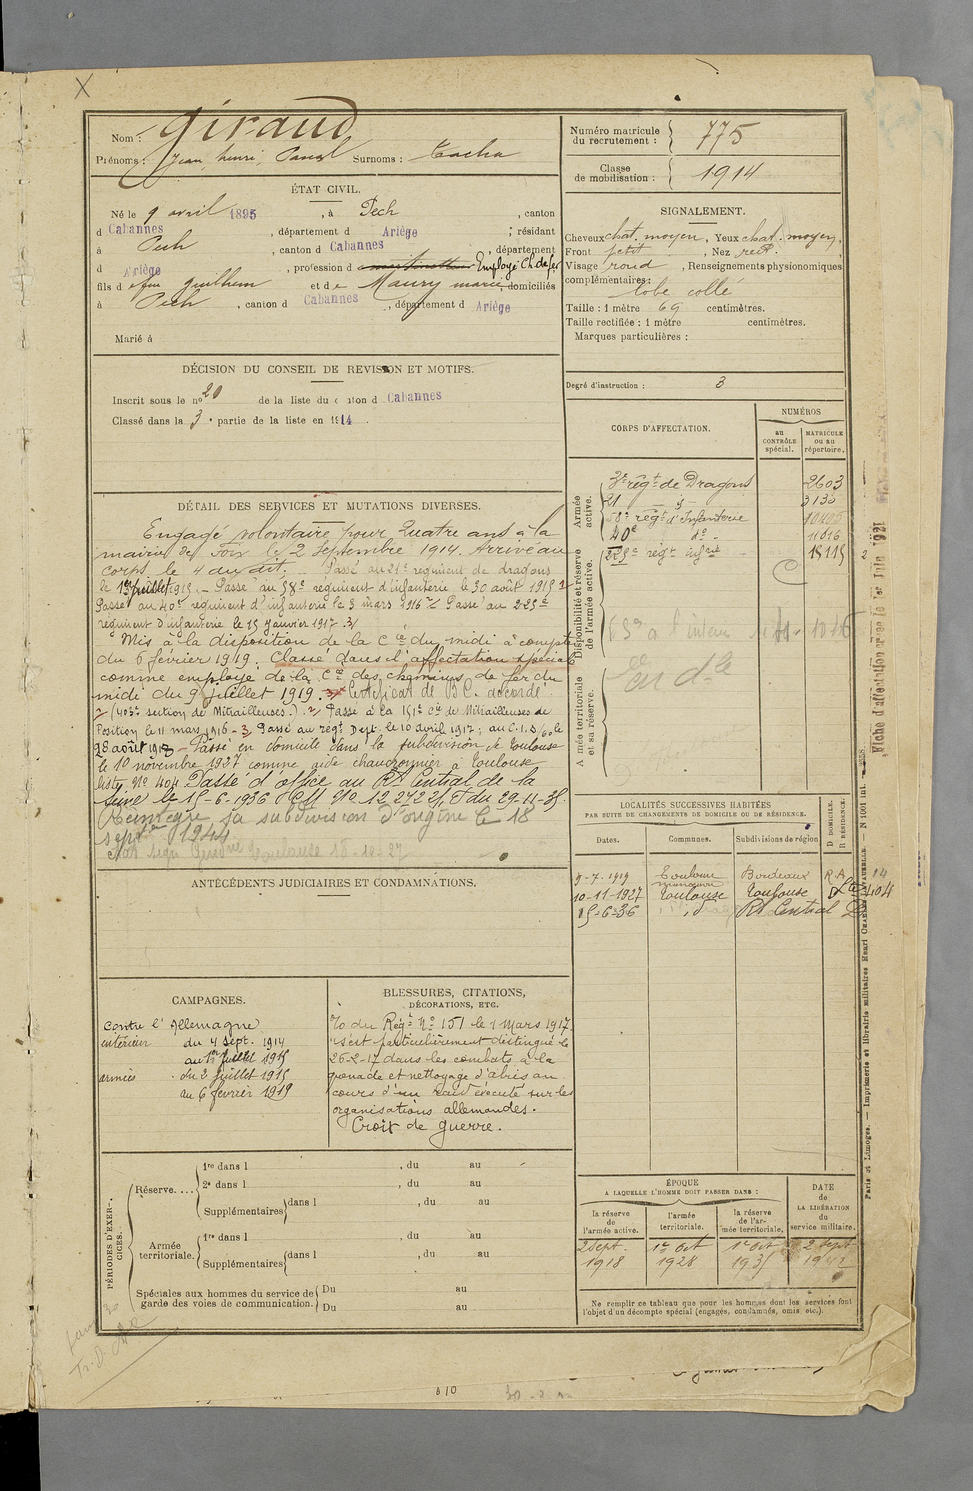 X
Nom : Giraud
Prénoms : Jean, henri, Surnoms : Cacha
Numéro matricule du recrutement : 775
Classe de mobilisation : 1914
ÉTAT CIVIL.
Né le 9 avril 1895, à Pech, canton
d Cabannes, département d Ariège, résidant
à Pech, canton d Cabannes, département
d Ariège, profession d Employé Ch de fer
fils d e feu Guilhem et d e Maury marie, domiciliés
à Pech, canton d Cabannes, département d Ariège
Marié à
SIGNALEMENT.
Cheveux chat. moyen, Yeux chat. moyen,
Front petit, Nez rect.
Visage rond, Renseignements physionomiques
complémentaires :
lobe collé
Taille : 1 mètre 69 centimètres.
Taille rectifiée : 1 mètre centimètres.
Marques particulières :
Degré d'instruction : 3
DÉCISION DU CONSEIL DE REVISION ET MOTIFS.
Inscrit sous le n° 20 de la liste du canton d Cabannes
Classé dans la 3e partie de la liste en 1914
CORPS D'AFFECTATION.
NUMÉROS
au CONTRÔLE spécial.
MATRICULE ou au répertoire.
Armée active.
3e régt de Dragons 2603
21 3130
58e régt d'Infanterie
40e do 11016
225e régt infie 18115
Disponibilité et réserve de l'armée active.
Armée territoriale et sa réserve.
DÉTAIL DES SERVICES ET MUTATIONS DIVERSES.
Engagé volontaire pour Quatre ans à la
mairie de Foix le 2 Septembre 1914. Arrivé au
corps le 4 du dit. Passé au 21e régiment de dragons
le 1er juillet 1915. Passé au 58e régiment d'infanterie le 30 août 1915
Passé au 40e régiment d'infanterie le 3 mars 1916 Passé au 225e
régiment d'infanterie le 15 janvier 1917
Mis à la disposition de la Cie du midi à compter
du 6 février 1919. Classé dans l'affectation spéciale
comme employé de la Cie des chemins de fer du
midi du 9 juillet 1919. Certificat de B.C. accordé
(403e section de Mitrailleuses.) Passé à la 151e Cie de Mitrailleuses de
Position le 11 mars 1916 - 3 Passé au régt Dept. le 10 avril 1917; au C.I.S. 60 le
28 août 1917 - Passé en domicile dans la subdivision de Toulouse
le 10 novembre 1927 comme aide chaudronnier à Toulouse
liste No 404 Passé d'office au Rt Central de la
Seine le 15-6-1936
Réintègre sa subdivision d'origine le 18
septbre 1944
Toulouse 18-10-27
ANTÉCÉDENTS JUDICIAIRES ET CONDAMNATIONS.
LOCALITÉS SUCCESSIVES HABITÉES
PAR SUITE DE CHANGEMENTS DE DOMICILE OU DE RÉSIDENCE.
Dates. Communes. Subdivisions de région D DOMICILE. R RÉSIDENCE.
9-7-1919 Bordeaux R.A
10-11-1927 Toulouse Toulouse D 404
15-6-36 Rt Central D
CAMPAGNES.
Contre l'Allemagne
intérieur du 4 Sept. 1914
au 1er Juillet 1915
armées du 2 juillet 1915
au 6 février 1919
BLESSURES, CITATIONS,
DÉCORATIONS, ETC.
O du Régt No 151 le 1 Mars 1917.
"s'est particulièrement distingué le
26-2-17 dans les combats à la
grenade et nettoyage d'abris au
cours d'un raid exécuté sur les
organisations allemandes.
Croix de Guerre.
PÉRIODES D'EXERCICES.
Réserve....
1re dans l , du au
2e dans l , du au
Supplémentaires dans l , du au
Armée territoriale.
1re dans l , du au
Supplémentaires dans l , du au
Spéciales aux hommes du service de garde des voies de communication.
Du au
Du au
ÉPOQUE
A LAQUELLE L'HOMME DOIT PASSER DANS :
la réserve de l'armée active. l'armée territoriale. la réserve de l'armée territoriale.
DATE de LA LIBÉRATION du service militaire.
2 sept. 1918 1er Oct 1928 1er Oct 193 2 sept 19
Ne remplir ce tableau que pour les hommes dont les services font
l'objet d'un décompte spécial (engagés, condamnés, omis etc.).
Fiche d'affectation créée le 1er Juin 1921
Paris et Limoges. — Imprimerie et librairie militaires Henri CHARLES-LAVAUZELLE. — N 1001 int.
810